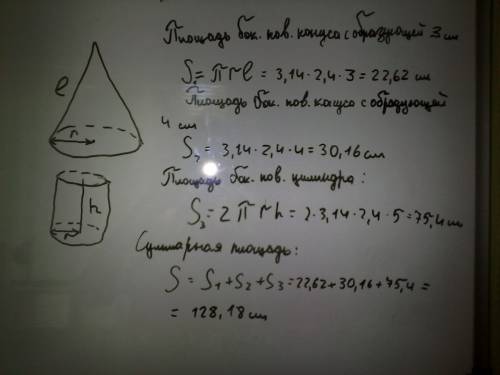 Площадь бок. пов. конуса с образующей 3 см
S₁ = π r l = 3,14 · 2,4 · 3 = 22,62 см
Площадь бок. пов. конуса с образующей
4 см
S₂ = 3,14 · 2,4 · 4 = 30,16 см
Площадь бок. пов. цилиндра:
S₃ = 2 π r h = 2 · 3,14 · 2,4 · 5 = 75,4 см
Суммарная площадь:
S = S₁ + S₂ + S₃ = 22,62 + 30,16 + 75,4 =
= 128,18 см
l
r
h
r